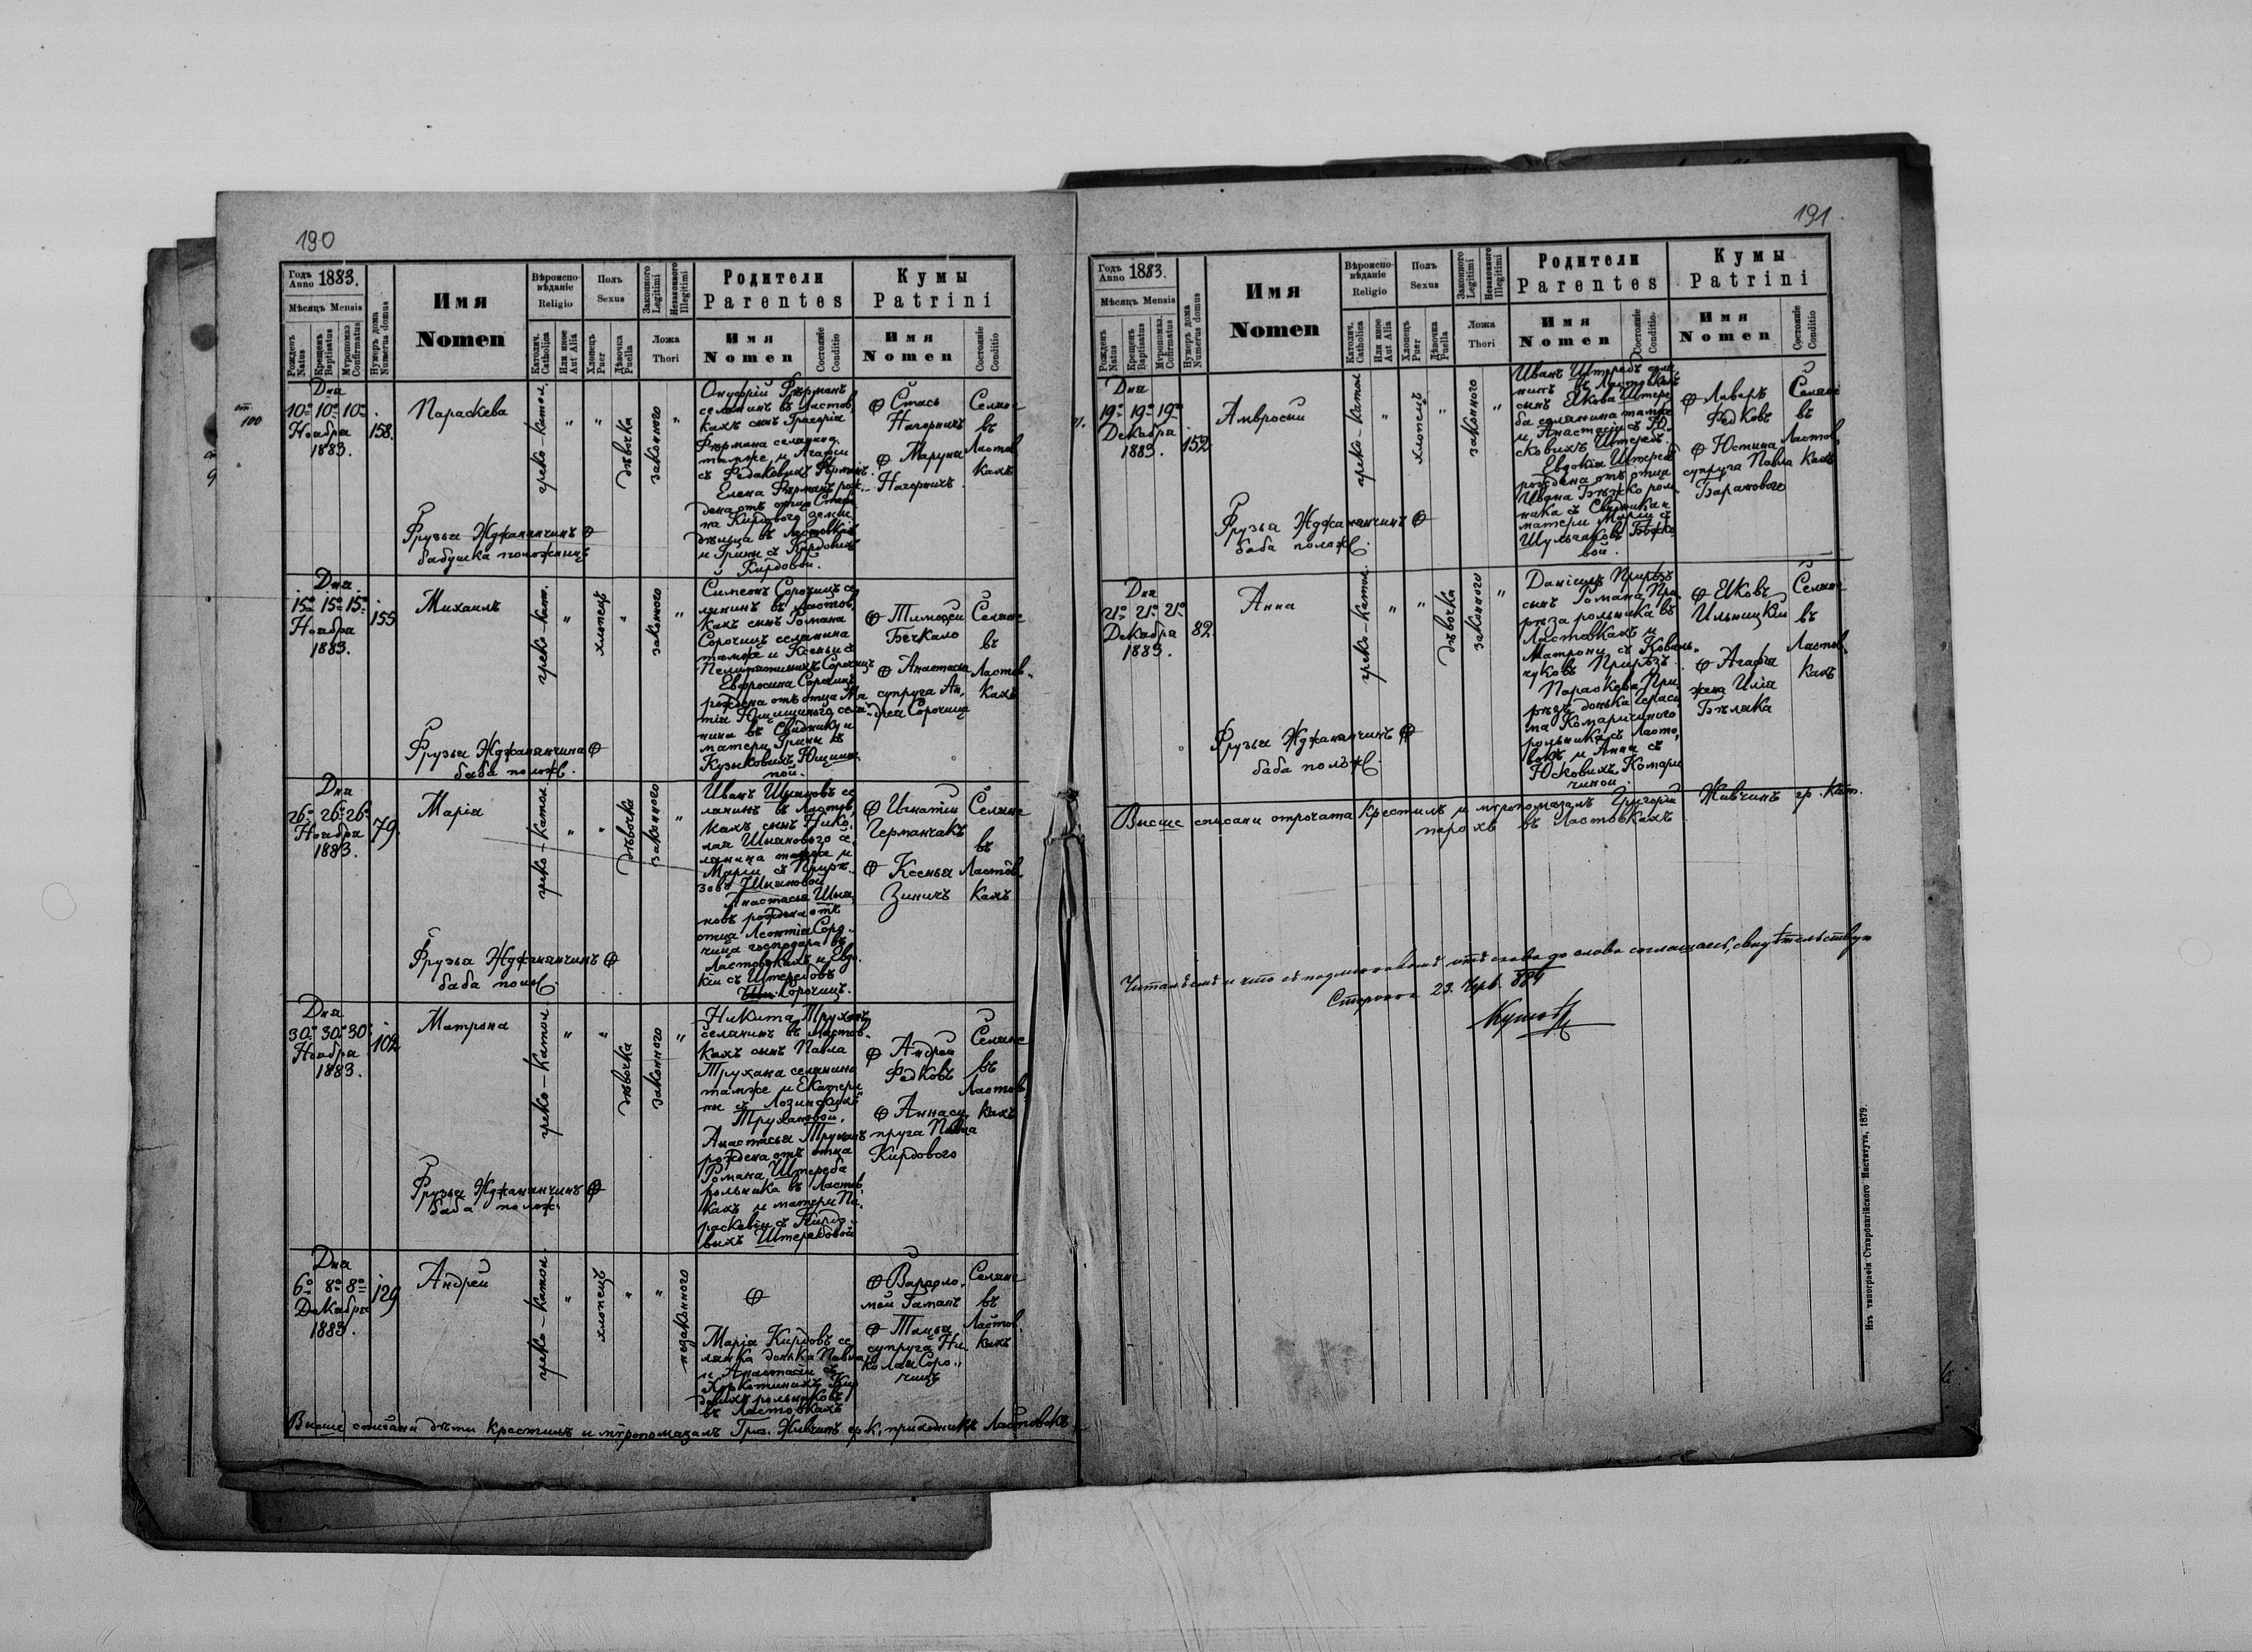 190
Годъ Anno 1883.
Мѣсяцъ Mensis
Рожденъ Natus
Крещенъ Baptisatus
Мѵропомаз. Confirmatus
Нумеръ дома Numerus domus
Имя
Nomen
Вѣроиспо-
вѣданіе
Religio
Католич. Catholica
Или иное Aut Alia
Полъ
Sexus
Хлопецъ Puer
Дѣвочка Puella
Законного Legitimi
Незаконного Illegitimi
Ложа
Thori
Родители
Parentes
Имя
Nomen
Состояніе Conditio
Кумы
Patrini
Имя
Nomen
Состояніе Conditio
100
Дня
10º 10º 10º
Ноября
1883.
158.
Параскева
греко-катол.
дѣвочка
законного
Онуфрій Фѣрманъ
селянинъ въ Ластов,
кахъ сынъ Григорія
Фѣрмана селянина
тамже, и Агафіи
съ Федаковихъ Фѣрманъ.
Елена Фѣрманъ рож,
дена отъ отца
на Кирдового земле
дѣльца въ Ластовкахъ
и Грини съ Кирдовихъ
Кирдовой.
Стась
Нагорнихъ
Маруня
Нагорнихъ
Селяне
въ
Ластов
кахъ
Фрузя Жджанянчинъ
бабушка положница
Дня
15º 15º 15º
Ноября
1883.
155
Михаилъ
греко-кат.
хлопецъ
законного
Симеонъ Сорочицъ се,
лянинъ въ Ластов,
кахъ сынъ Романа
Сорочицъ селянина
тамже и Ксеньи съ
Сорочицъ
Евфросина Сорочицъ
рождена отъ отца Ма
тія Ющишиного селя
нина въ Свидники и
матери Грини съ
Кузьковихъ Ющиши
ной.
Тимофей
Бечкало
Анастасія
супруга Ан,
дрея Сорочица
Селяне
въ
Ластов.
кахъ
Фрузя Жджанянчина
баба полож.
Дня
26º 26º 26º
Ноября
1883.
79.
Марія
греко-катол.
дѣвочка
законного
Иванъ Шияновъ се
лянинъ въ Ластов,
кахъ сынъ Нико,
лая Шиянового се,
лянина тамже и
Маріи съ Прирѣ
зовъ Шияновой
Анастасія Шия,
новъ рождена отъ
отца Леонтія Соро,
чица господаря въ
Ластовкахъ и Евдо.
кіи съ Штеребовъ
Сорочицъ.
Игнатій
Германчакъ
Ксенья
Зиничъ
Селяне
въ
Ластов.
кахъ
Фрузя Жджанянчинъ
баба пол.
Дня
30º 30º 30º
Ноября
1883.
102
Матрона
греко-катол.
дѣвочка
законного
Никита Труханъ
селянинъ въ Ластов.
кахъ сынъ Павла
Трухана селянина
тамже и Екатери
ны съ Лозинскихъ
Трухановой.
Анастасья Труханъ
рождена отъ отца
Романа Штереба
рольника въ Ластов,
кахъ и матери Па,
раскевіи съ Кирдо
выхъ Штеребовой
Андрей
Федковъ
Анна су,
пруга Павла
Кирдового
Селяне
въ
Ластов,
кахъ
Фрузя Жджанянчинъ
баба полож.
Дня
6º 8º 8º
Декабря
1883.
129
Андрей
греко-катол.
хлопецъ
незаконного
Марія Кирдовъ се
лянка донька Павла
и Анастасіи съ
Кир
довихъ рольниковъ
въ Ластовкахъ
Варфоло,
мей Гаманъ
Тацья
супруга Ни
колая Соро,,
чицъ
Селяне
въ
Ластов
кахъ
Высше описани дѣти крестилъ и мѵропомазалъ Григ. Живчинъ гр. К. приходникъ Ластовокъ
191.
Годъ Anno 1883.
Мѣсяцъ Mensis
Рожденъ Natus
Крещенъ Baptisatus
Мѵропомаз. Confirmatus
Нумеръ дома Numerus domus
Имя
Nomen
Вѣроиспо-
вѣданіе
Religio
Католич. Catholica
Или иное Aut Alia
Полъ
Sexus
Хлопецъ Puer
Дѣвочка Puella
Законного Legitimi
Незаконного Illegitimi
Ложа
Thori
Родители
Parentes
Имя
Nomen
Состояніе Conditio.
Кумы
Patrini
Имя
Nomen
Состояніе Conditio
Дня
19º 19º 19º
Декабря
1883.
152
Амвросій
греко-катол.
хлопецъ
законного
Иванъ Штеребъ селя
нинъ въ Ластовкахъ
сынъ Елкова Штере,
ба селянина тамже
и Анастасіи съ Ю,
сковихъ Штеребъ.
Евдокія Штереб
рождена отъ отца
Ивана Бѣжко роль
ника съ Свидника и
матери Маріи съ
Шульгаковъ Бѣжко
вой.
Лаверъ
Федковъ
Юстина
супруга Павла
Баранового
Селяне
въ
Ластов,
кахъ
Фрузя Жджанянчинъ
баба полож.
Дня
21º 21º 21º
Декабря
1883.
82.
Анна
греко-катол.
дѣвочка
законного
Даніилъ Прирѣзъ
сынъ Романа При,
рѣза рольника въ
Ластовкахъ и
Матроны съ Коваль,
чуковъ Прирѣзъ.
Параскева При
рѣзъ донька Гераси
ма Комаричиного
рольника съ Ласто,
вокъ и Анны съ
Юсковихъ Комари
чиной.
Елковъ
Ильницкій
Агафія
жена Илія
Бѣляка
Селяне
въ
Ластов,
кахъ
Фрузя Жджанянчинъ
баба полож.
Высше списани отрочата крестилъ и мѵропомазалъ Григорій Живчинъ гр. кат.
парохъ въ Ластовкахъ
Читалъемъ и что съ подлинникомъ отъ слова до слова соглашаесь, свидѣтельствую
23. Черв. 884
Изъ типографіи Ставропигійского Института, 1879.